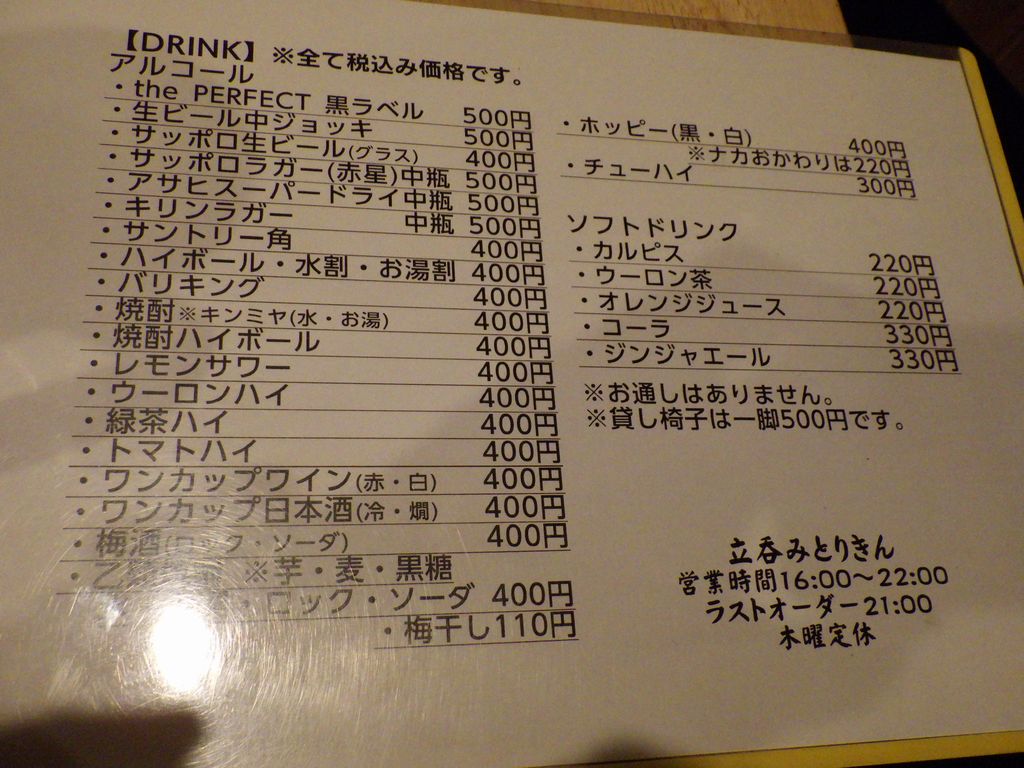 【DRINK】 ※全て税込み価格です。
アルコール
・the PERFECT 黒ラベル 500円
・生ビール中ジョッキ 500円
・サッポロ生ビール(グラス) 400円
・サッポロラガー(赤星)中瓶 500円
・アサヒスーパードライ中瓶 500円
・キリンラガー 中瓶 500円
・サントリー角 400円
・ハイボール・水割・お湯割 400円
・バリキング 400円
・焼酎※キンミヤ(水・お湯) 400円
・焼酎ハイボール 400円
・レモンサワー 400円
・ウーロンハイ 400円
・緑茶ハイ 400円
・トマトハイ 400円
・ワンカップワイン(赤・白) 400円
・ワンカップ日本酒(冷・燗) 400円
・梅酒(ロック・ソーダ) 400円
・乙 ※芋・麦・黒糖
・ロック・ソーダ 400円
・梅干し110円
・ホッピー(黒・白) 400円
※ナカおかわりは220円
・チューハイ 300円
ソフトドリンク
・カルピス 220円
・ウーロン茶 220円
・オレンジジュース 220円
・コーラ 330円
・ジンジャエール 330円
※お通しはありません。
※貸し椅子は一脚500円です。
立呑みとりきん
営業時間16:00～22:00
ラストオーダー21:00
木曜定休